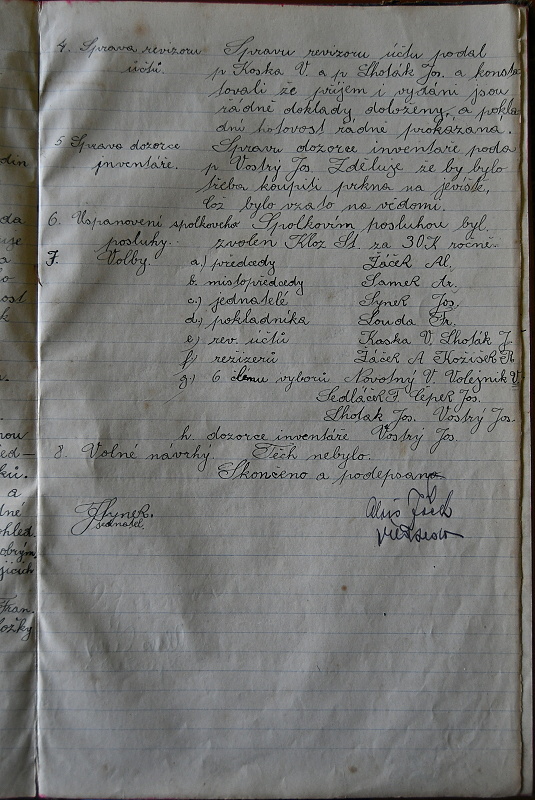 4. Sprava revizoru Spravu revizoru účtu podal
účtů. p Kaska V. a p Sholák Jos. a konsta-
tovali že příjem i vydání jsou
řádně doklady doloženy, a pokla
dní hotovost řádně prokázána.
5. Sprava dozorce Spravu dozorce inventáře poda
inventáře. p Vostrý Jos Zděluje že by bylo
třeba koupiti prkna na jeviště,
což bylo vzato na vědomí.
6. Uspanovení spolkoveho Spolkovím posluhou byl
posluhy. zvolen Kloz St. za 30K ročně.
7. Volby. a.) předsedy Žáček Al.
b. místopředsedy Samek Ar.
c.) jednatelé Synek Jos.
d.) pokladníka Souda Fr.
e) rev. účtů Kaska V, Sholák J.
f) režizerů Žáček A Kožíšek Fr
g.) 6 členu vyborů Novotný V. Volejník V.
Sedláček F. Čepek Jos.
Sholák Jos. Vostrý Jos.
h. dozorce inventáře Vostrý Jos.
8. Volné návrhy. Těch nebylo.
Skončeno a podepsano
JSynek. Alois Žáček
jednatel. předseda
din
da
uje
a
lo
ost
k
nou
ed-
ků.
a
dné
ohled.
obrým
jících
Fran.
ložky